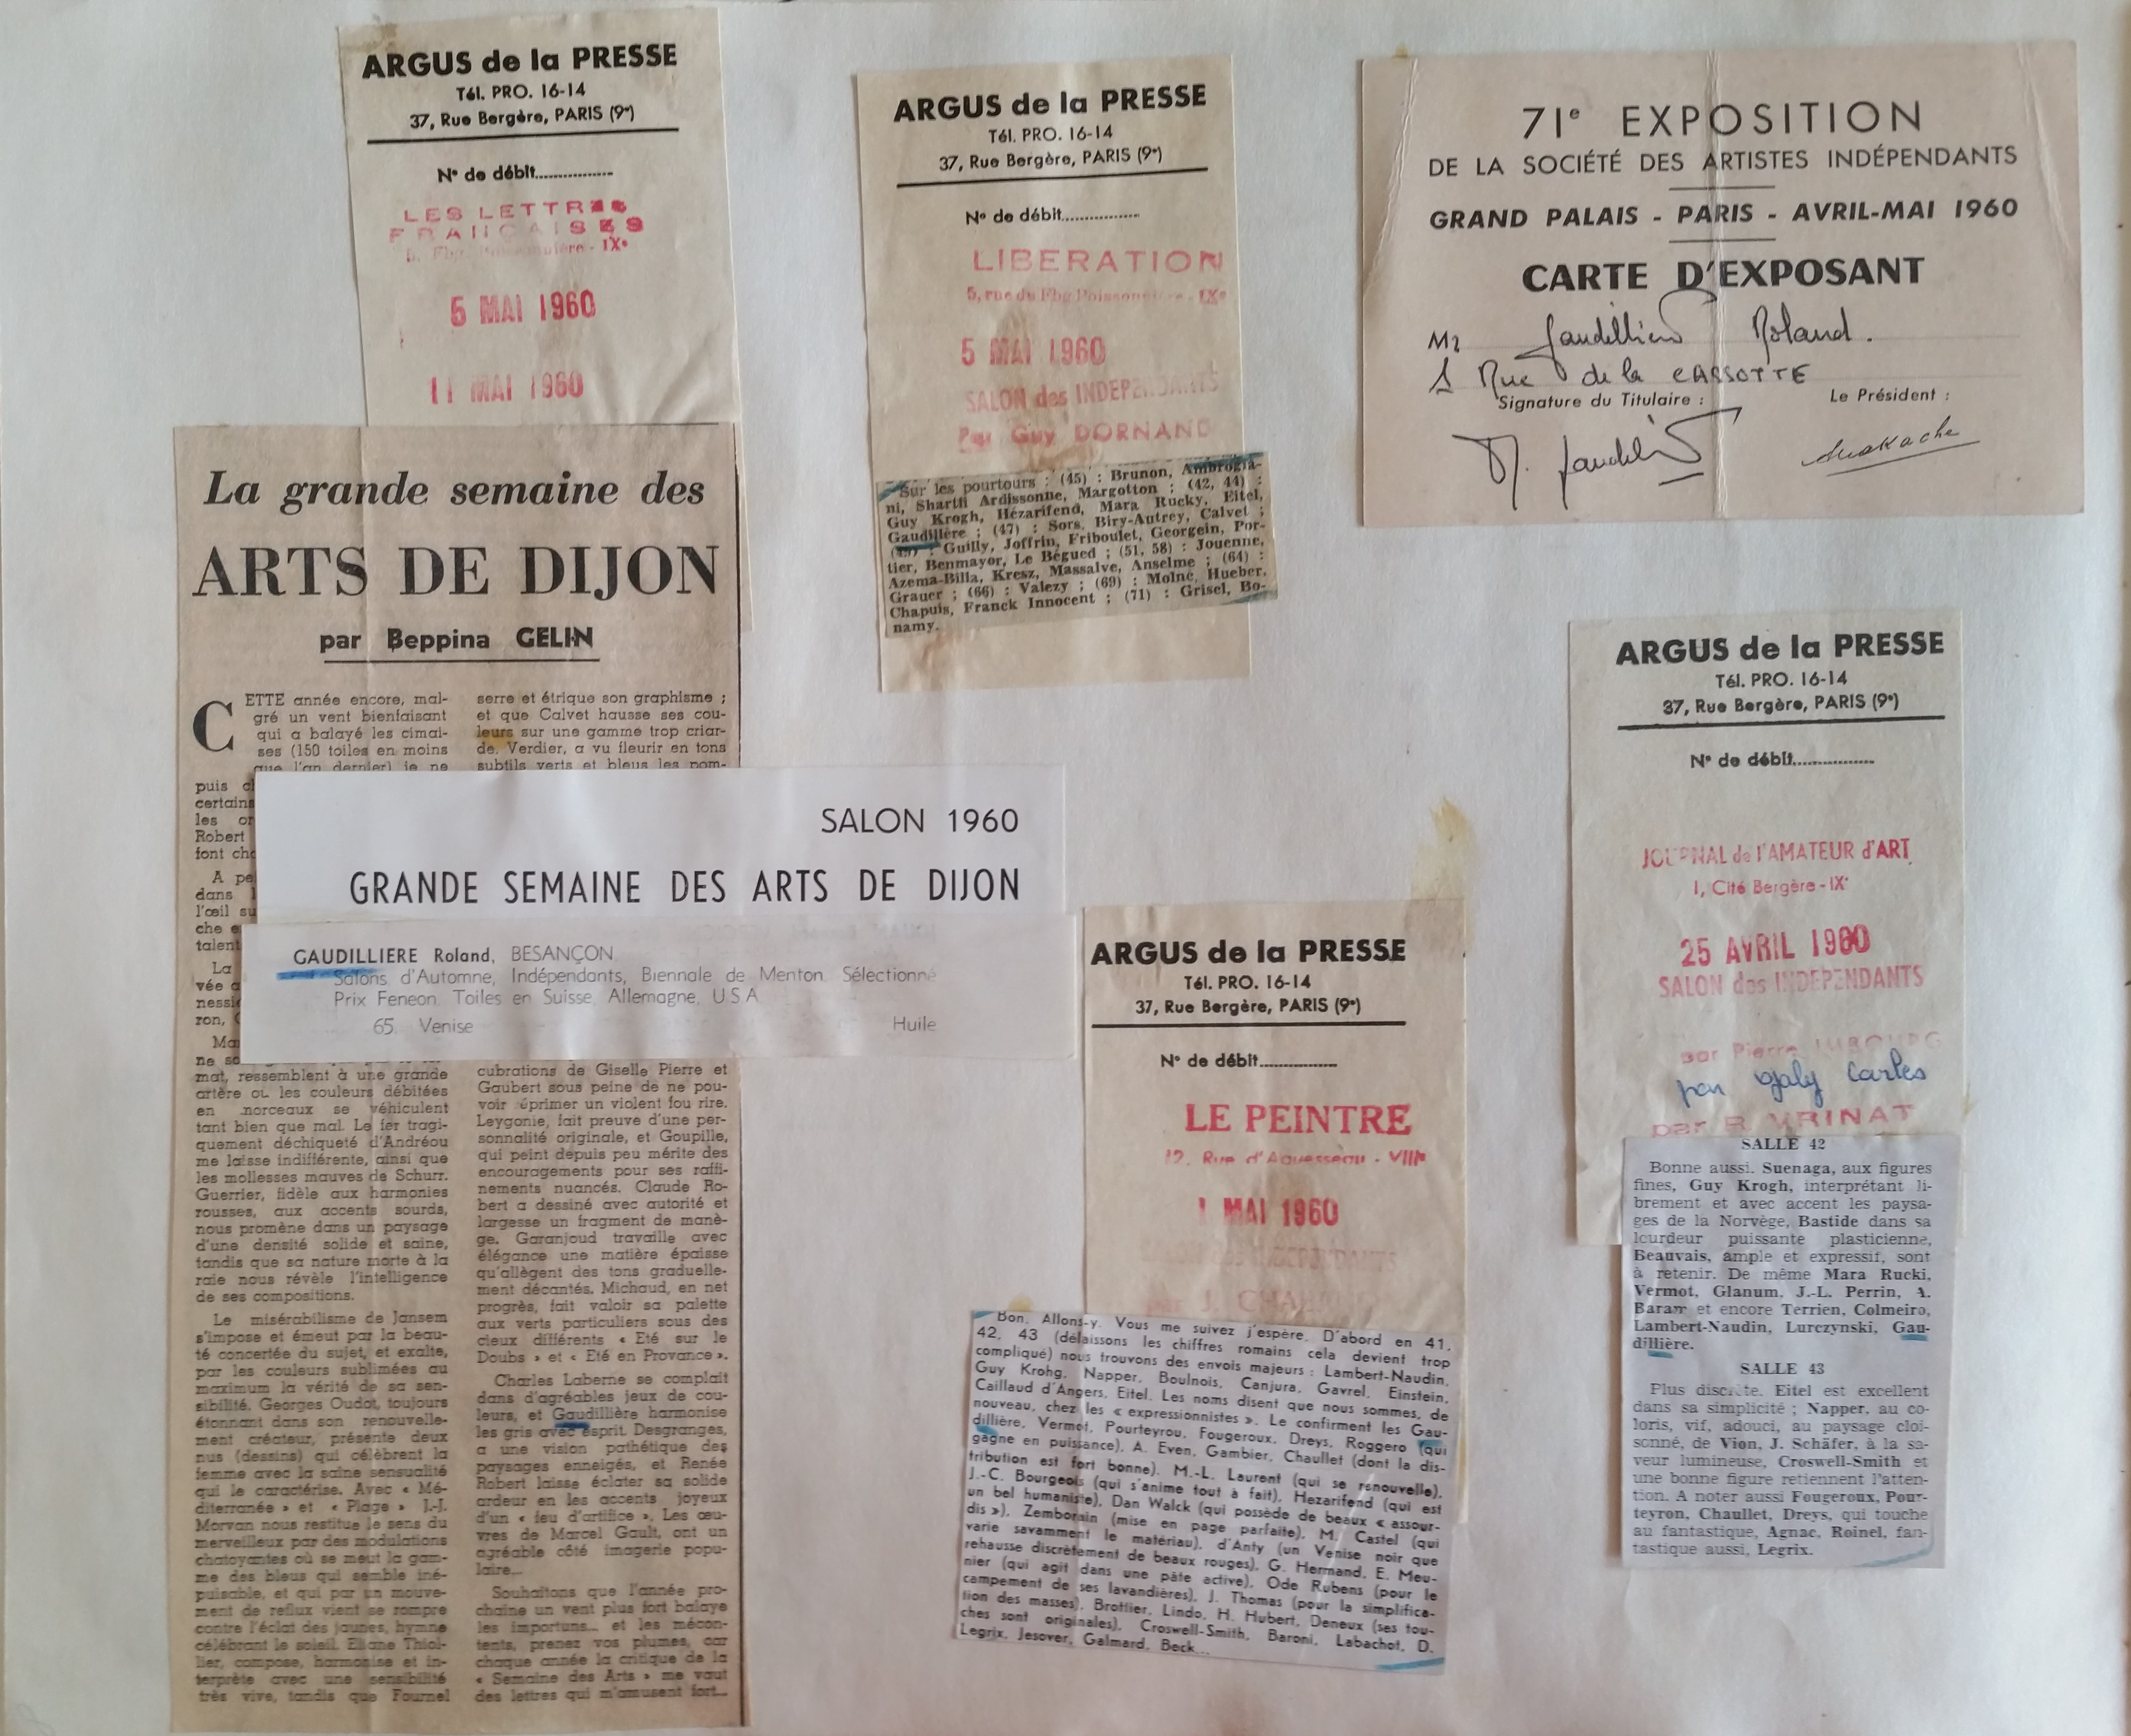 ARGUS de la PRESSE
Tél. PRO. 16-14
37, Rue Bergère, PARIS (9e)
N° de débit...............
LES LETTRES
FRANCAISES
5, Fbg. Poissonnière - IXe
5 MAI 1960
11 MAI 1960
La grande semaine des
ARTS DE DIJON
par Beppina GELIN
CETTE année encore, mal-
gré un vent bienfaisant
qui a balayé les cimai-
ses (150 toiles en moins
que l'an dernier) je ne
puis
certains
les
Robert
font
A
dans
l'œil
che
talent
La
vée
ron,
ne
mat, ressemblent à une grande
artère où les couleurs débitées
en morceaux se véhiculent
tant bien que mal. Le fer tragi-
quement déchiqueté d'Andréou
me laisse indifférente, ainsi que
les mollesses mauves de Schurr.
Guerrier, fidèle aux harmonies
rousses, aux accents sourds,
nous promène dans un paysage
d'une densité solide et saine,
tandis que sa nature morte à la
raie nous révèle l'intelligence
de ses compositions.
Le misérabilisme de Jansem
s'impose et émeut par la beau-
té concertée du sujet, et exalte,
par les couleurs sublimées au
maximum la vérité de sa sen-
sibilité. Georges Oudot, toujours
étonnant dans son renouvelle-
ment créateur, présente deux
nus (dessins) qui célèbrent la
femme avec la saine sensualité
qui le caractérise. Avec « Mé-
diterranée » et « Plage » J.-J.
Morvan nous restitue le sens du
merveilleux par des modulations
chatoyantes où se meut la gam-
me des bleus qui semble iné-
puisable, et qui par un mouve-
ment de reflux vient se rompre
contre l'éclat des jaunes, hymne
célébrant le soleil. Eliane Thiol-
lier, compose, harmonise et in-
terprète avec une sensibilité
très vive, tandis que Fournel
serre et étrique son graphisme ;
et que Calvet hausse ses cou-
leurs sur une gamme trop criar-
de. Verdier, a vu fleurir en tons
subtils verts et bleus les pom-
cubrations de Giselle Pierre et
Gaubert sous peine de ne pou-
voir réprimer un violent fou rire.
Leygonie, fait preuve d'une per-
sonnalité originale, et Goupille,
qui peint depuis peu mérite des
encouragements pour ses raffi-
nements nuancés. Claude Ro-
bert a dessiné avec autorité et
largesse un fragment de manè-
ge. Garanjoud travaille avec
élégance une matière épaisse
qu'allègent des tons graduelle-
ment décantés. Michaud, en net
progrès, fait valoir sa palette
aux verts particuliers sous des
cieux différents « Eté sur le
Doubs » et « Eté en Provance ».
Charles Laberne se complait
dans d'agréables jeux de cou-
leurs, et Gaudillière harmonise
les gris avec esprit. Desgranges,
a une vision pathétique des
paysages enneigés, et Renée
Robert laisse éclater sa solide
ardeur en les accents joyeux
d'un « feu d'artifice ». Les œu-
vres de Marcel Gault, ont un
agréable côté imagerie popu-
laire...
Souhaitons que l'année pro-
chaine un vent plus fort balaye
les importuns... et les mécon-
tents, prenez vos plumes, car
chaque année la critique de la
« Semaine des Arts » me vaut
des lettres qui m'amusent fort...
SALON 1960
GRANDE SEMAINE DES ARTS DE DIJON
GAUDILLIERE Roland, BESANÇON
Salons d'Automne, Indépendants, Biennale de Menton. Sélectionné
Prix Feneon. Toiles en Suisse, Allemagne, U.S.A
65. Venise Huile
ARGUS de la PRESSE
Tél. PRO. 16-14
37, Rue Bergère, PARIS (9e)
N° de débit...............
LIBERATION
5, rue du Fbg Poissonnière - IXe
5 MAI 1960
SALON des INDEPENDANTS
Par Guy DORNAND
Sur les pourtours : (45) : Brunon, Ambrogia-
ni, Shariti Ardissonne, Margotton ; (42, 44) :
Guy Krogh, Hézarifend, Mara Rucky, Eitel,
Gaudillère ; (47) : Sors, Biry-Autrey, Calvet ;
: Guilly, Joffrin, Friboulet, Georgein, Por-
tier, Benmayor, Le Bégued ; (51, 58) : Jouenne,
Azema-Billa, Kresz, Massalve, Anselme ; (64) :
Grauer ; (66) : Valezy ; (69) : Molné, Hueber,
Chapuis, Franck Innocent ; (71) : Grisel, Bo-
namy.
71e EXPOSITION
DE LA SOCIÉTÉ DES ARTISTES INDÉPENDANTS
GRAND PALAIS - PARIS - AVRIL-MAI 1960
CARTE D'EXPOSANT
Mr Gaudillière Roland.
1 Rue de la CASSOTTE
Signature du Titulaire : Le Président :
R. Gaudillière
ARGUS de la PRESSE
Tél. PRO. 16-14
37, Rue Bergère, PARIS (9e)
N° de débit...............
LE PEINTRE
12, Rue d'Aguesseau - VIIIe
1 MAI 1960
INDEPENDANTS
Bon. Allons-y. Vous me suivez j'espère. D'abord en 41,
42, 43 (délaissons les chiffres romains cela devient trop
compliqué) nous trouvons des envois majeurs : Lambert-Naudin,
Guy Krohg, Napper, Boulnois, Canjura, Gavrel, Einstein,
Caillaud d'Angers, Eitel. Les noms disent que nous sommes, de
nouveau, chez les « expressionnistes ». Le confirment les Gau-
dillière, Vermot, Pourteyrou, Fougeroux, Dreys, Roggero (qui
gagne en puissance), A. Even, Gambier, Chaullet (dont la dis-
tribution est fort bonne), M.-L. Laurent (qui se renouvelle),
J.-C. Bourgeois (qui s'anime tout à fait), Hezarifend (qui est
un bel humaniste), Dan Walck (qui possède de beaux « assour-
dis »), Zemborain (mise en page parfaite), M. Castel (qui
varie savamment le matériau), d'Anty (un Venise noir que
rehausse discrètement de beaux rouges), G. Hermand, E. Meu-
nier (qui agit dans une pâte active), Ode Rubens (pour le
campement de ses lavandières), J. Thomas (pour la simplifica-
tion des masses), Brottier, Lindo, H. Hubert, Deneux (ses tou-
ches sont originales), Croswell-Smith, Baroni, Labachot, D.
Legrix, Jesover, Galmard, Beck...
ARGUS de la PRESSE
Tél. PRO. 16-14
37, Rue Bergère, PARIS (9e)
N° de débit...............
JOURNAL de l'AMATEUR d'ART
1, Cité Bergère - IXe
25 AVRIL 1960
SALON des INDEPENDANTS
par Pierre IMBOURG
par Galy Carles
par R. VRINAT
SALLE 42
Bonne aussi. Suenaga, aux figures
fines, Guy Krogh, interprétant li-
brement et avec accent les paysa-
ges de la Norvège, Bastide dans sa
lourdeur puissante plasticienne,
Beauvais, ample et expressif, sont
à retenir. De même Mara Rucki,
Vermot, Glanum, J.-L. Perrin, A.
Baram et encore Terrien, Colmeiro,
Lambert-Naudin, Lurczynski, Gau-
dillière.
SALLE 43
Plus discrète. Eitel est excellent
dans sa simplicité ; Napper, au co-
loris, vif, adouci, au paysage cloi-
sonné, de Vion, J. Schäfer, à la sa-
veur lumineuse, Croswell-Smith et
une bonne figure retiennent l'atten-
tion. A noter aussi Fougeroux, Pour-
teyron, Chaullet, Dreys, qui touche
au fantastique, Agnac, Roinel, fan-
tastique aussi, Legrix.